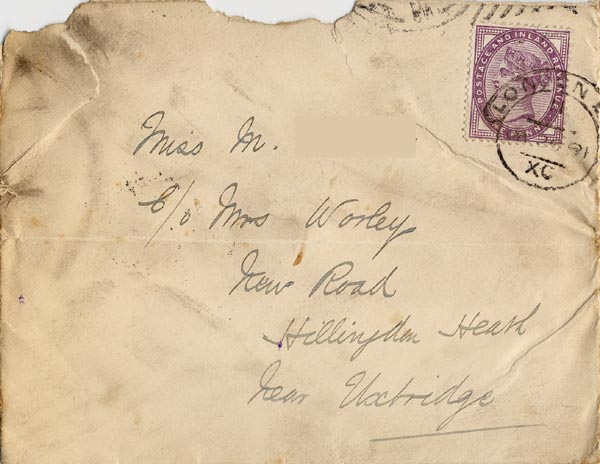 POSTAGE AND INLAND REVENUE
PENNY
XC
Miss M.
C/o Mrs Worley
New Road
Hillingdon Heath
Near Uxbridge